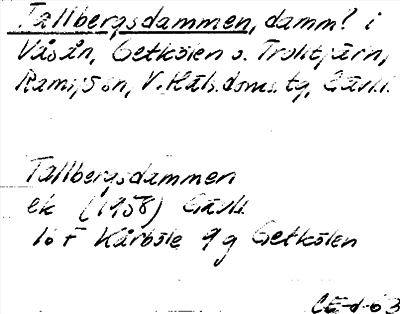 Tallbergsdammen, damm? i
Våsån, Getkölen o. Trohtjärn,
Ramsjö sn, V. Häls. doms. tg, Gävl.
Tallbergsdammen
ek (1958) Gävl.
16 F Kårböle 9 g Getkölen